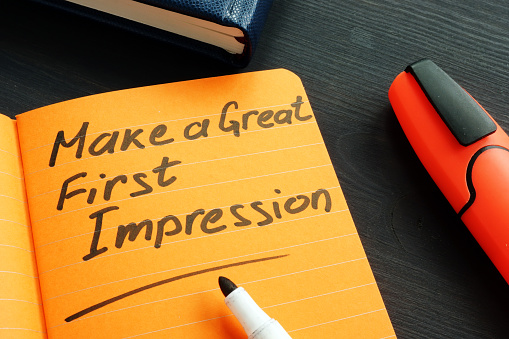 Make a Great
First
Impression